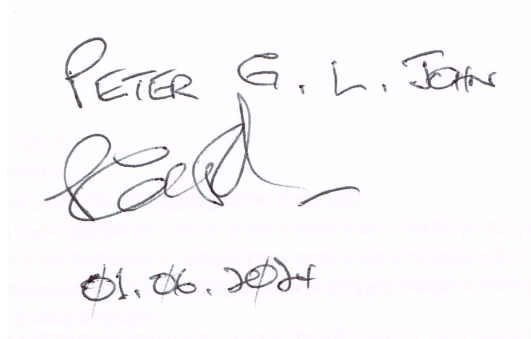 PETER G. L. JOHN
01.06.2024